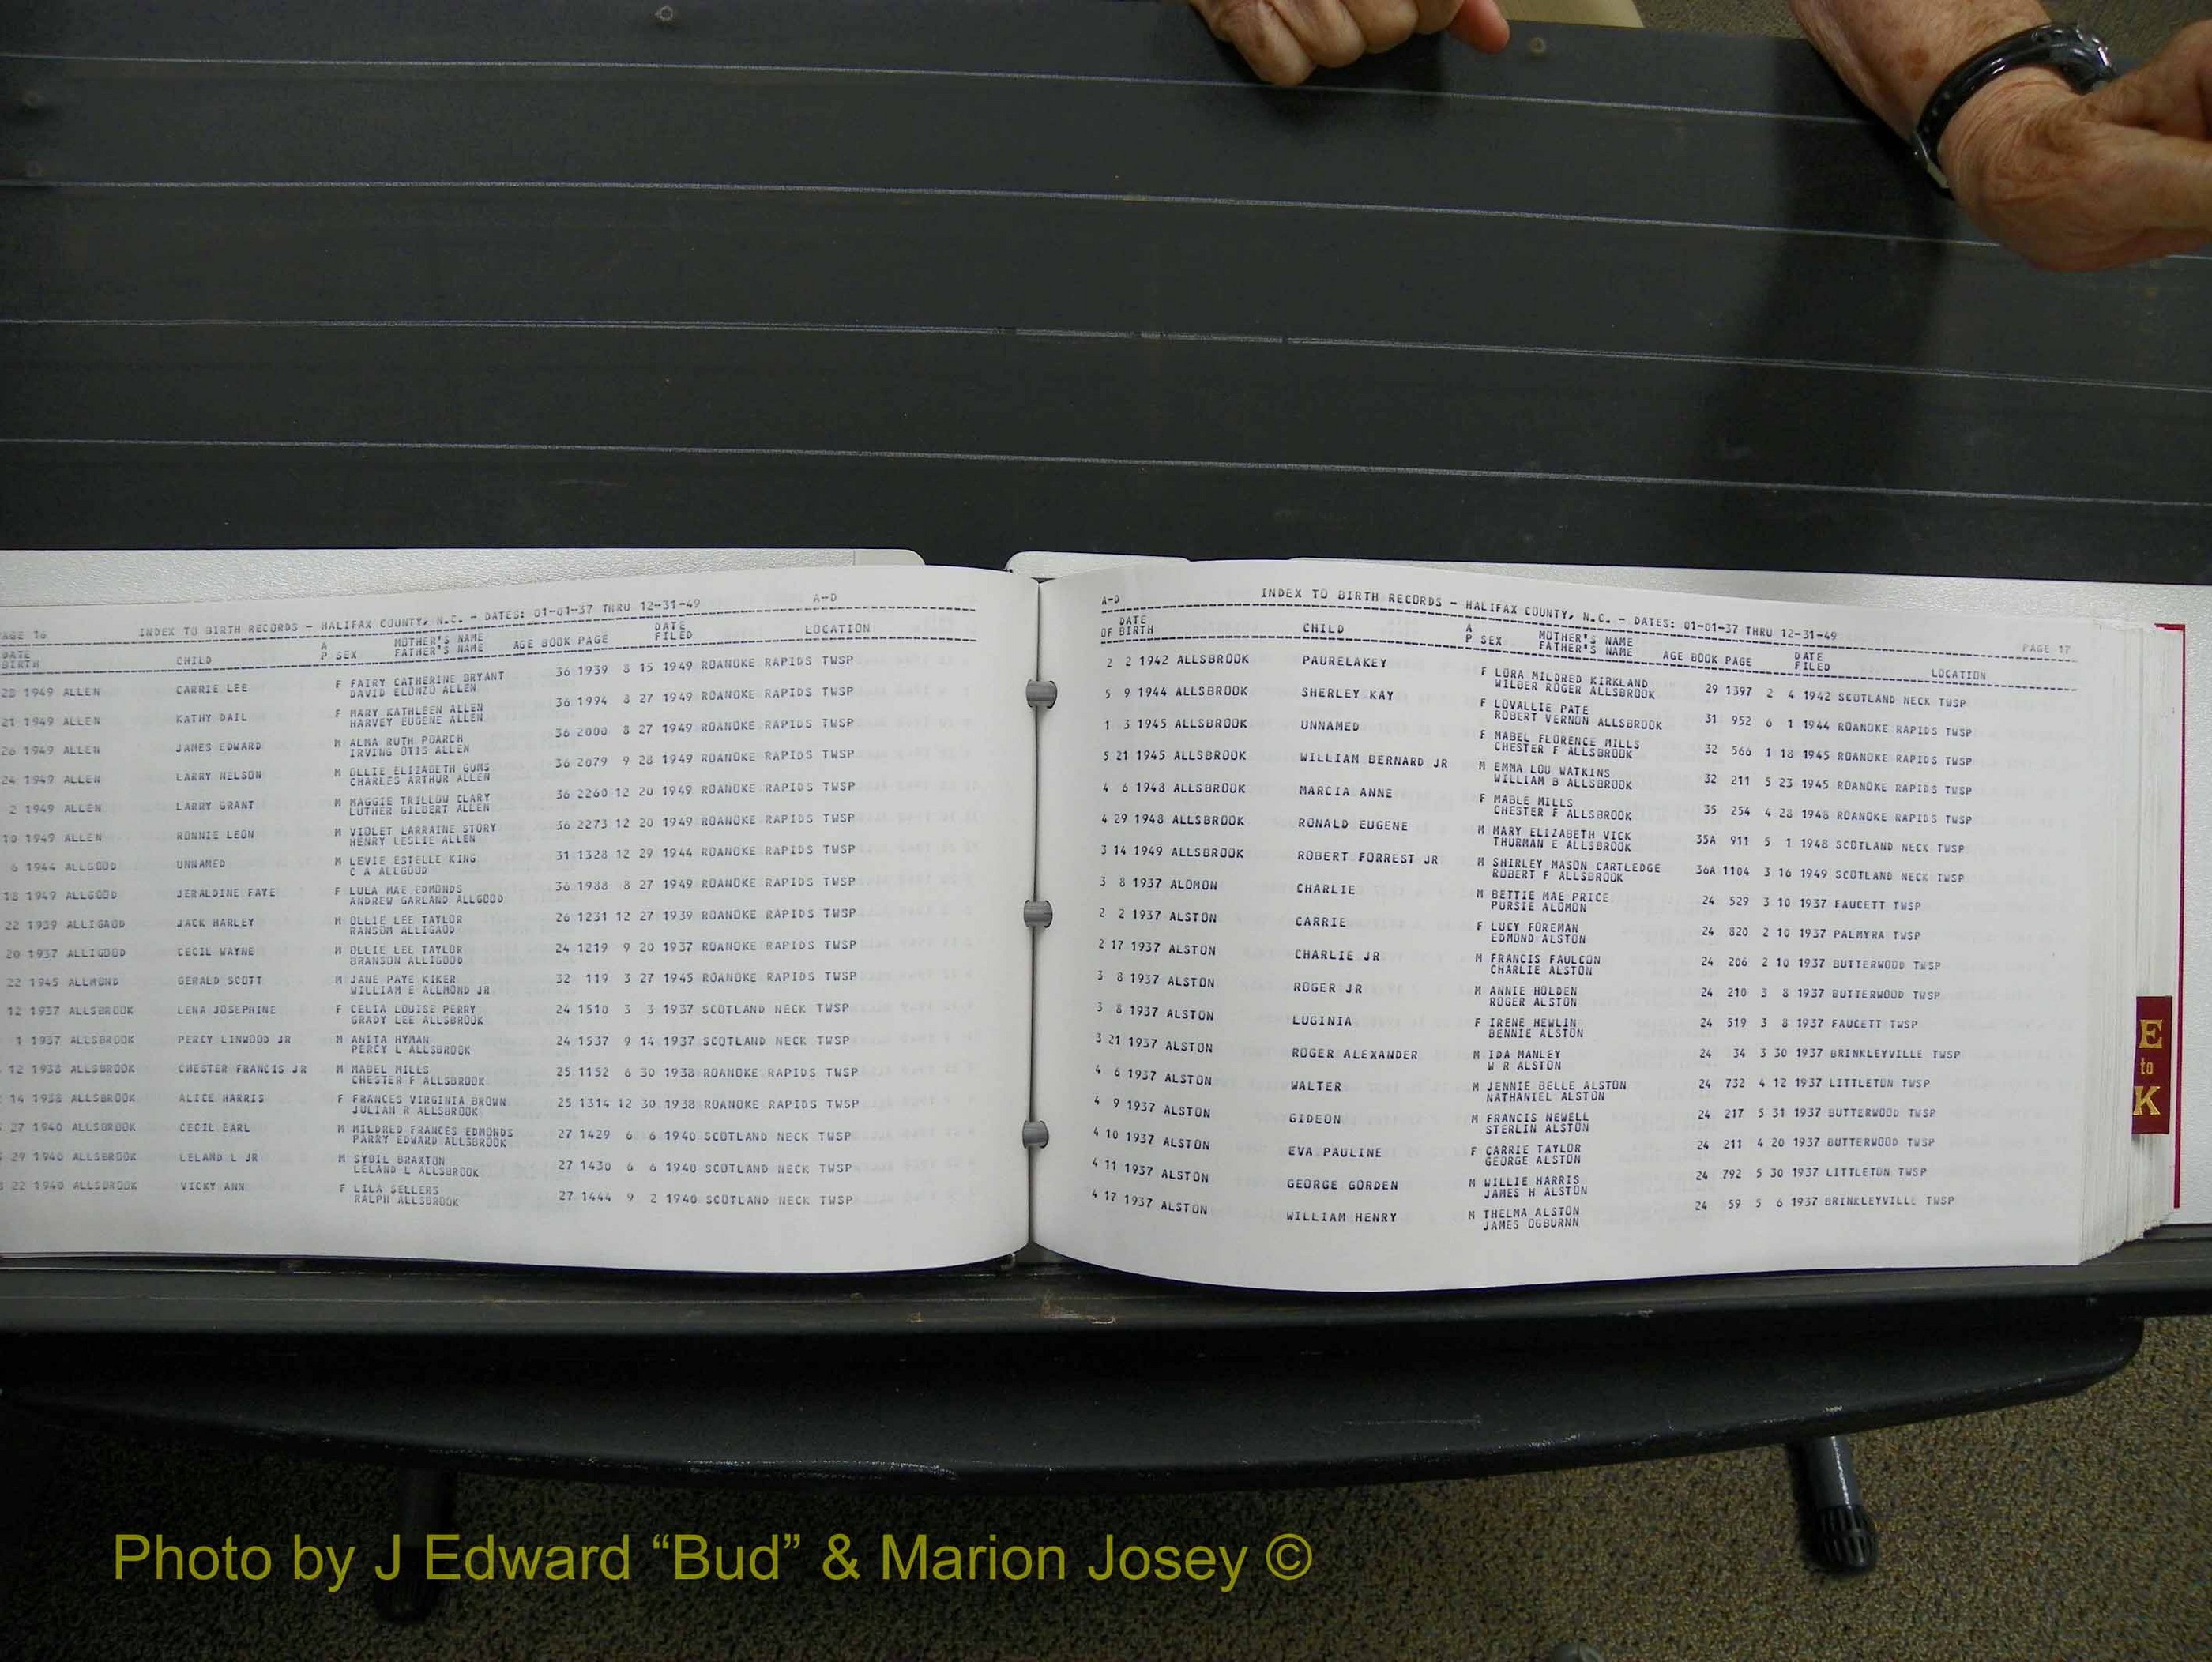 PAGE 16 INDEX TO BIRTH RECORDS - HALIFAX COUNTY, N.C. - DATES: 01-01-37 THRU 12-31-49 A-D
DATE BIRTH CHILD A P SEX MOTHER'S NAME FATHER'S NAME AGE BOOK PAGE DATE FILED LOCATION
28 1949 ALLEN CARRIE LEE F FAIRY CATHERINE BRYANT 36 1939 8 15 1949 ROANOKE RAPIDS TWSP
DAVID ELONZO ALLEN
21 1949 ALLEN KATHY DAIL F MARY KATHLEEN ALLEN 36 1994 8 27 1949 ROANOKE RAPIDS TWSP
HARVEY EUGENE ALLEN
26 1949 ALLEN JAMES EDWARD M ALMA RUTH POARCH 36 2000 8 27 1949 ROANOKE RAPIDS TWSP
IRVING OTIS ALLEN
24 1949 ALLEN LARRY NELSON M OLLIE ELIZABETH GUMS 36 2079 9 28 1949 ROANOKE RAPIDS TWSP
CHARLES ARTHUR ALLEN
2 1949 ALLEN LARRY GRANT M MAGGIE TRILLOW CLARY 36 2260 12 20 1949 ROANOKE RAPIDS TWSP
LUTHER GILBERT ALLEN
10 1949 ALLEN RONNIE LEON M VIOLET LARRAINE STORY 36 2273 12 20 1949 ROANOKE RAPIDS TWSP
HENRY LESLIE ALLEN
6 1944 ALLGOOD UNNAMED M LEVIE ESTELLE KING 31 1328 12 29 1944 ROANOKE RAPIDS TWSP
C A ALLGOOD
18 1949 ALLGOOD JERALDINE FAYE F LULA MAE EDMONDS 36 1988 8 27 1949 ROANOKE RAPIDS TWSP
ANDREW GARLAND ALLGOOD
22 1939 ALLIGAOD JACK HARLEY M OLLIE LEE TAYLOR 26 1231 12 27 1939 ROANOKE RAPIDS TWSP
RANSOM ALLIGAOD
20 1937 ALLIGOOD CECIL WAYNE M OLLIE LEE TAYLOR 24 1219 9 20 1937 ROANOKE RAPIDS TWSP
BRANSON ALLIGOOD
22 1945 ALLMOND GERALD SCOTT M JANE PAYE KIKER 32 119 3 27 1945 ROANOKE RAPIDS TWSP
WILLIAM E ALLMOND JR
12 1937 ALLSBROOK LENA JOSEPHINE F CELIA LOUISE PERRY 24 1510 3 3 1937 SCOTLAND NECK TWSP
GRADY LEE ALLSBROOK
1 1937 ALLSBROOK PERCY LINWOOD JR M ANITA HYMAN 24 1537 9 14 1937 SCOTLAND NECK TWSP
PERCY L ALLSBROOK
12 1938 ALLSBROOK CHESTER FRANCIS JR M MABEL MILLS 25 1152 6 30 1938 ROANOKE RAPIDS TWSP
CHESTER F ALLSBROOK
14 1938 ALLSBROOK ALICE HARRIS F FRANCES VIRGINIA BROWN 25 1314 12 30 1938 ROANOKE RAPIDS TWSP
JULIAN R ALLSBROOK
27 1940 ALLSBROOK CECIL EARL M MILDRED FRANCES EDMONDS 27 1429 6 6 1940 SCOTLAND NECK TWSP
PARRY EDWARD ALLSBROOK
29 1940 ALLSBROOK LELAND L JR M SYBIL BRAXTON 27 1430 6 6 1940 SCOTLAND NECK TWSP
LELAND L ALLSBROOK
22 1940 ALLSBROOK VICKY ANN F LILA SELLERS 27 1444 9 2 1940 SCOTLAND NECK TWSP
RALPH ALLSBROOK
A-D INDEX TO BIRTH RECORDS - HALIFAX COUNTY, N.C. - DATES: 01-01-37 THRU 12-31-49 PAGE 17
DATE OF BIRTH CHILD A P SEX MOTHER'S NAME FATHER'S NAME AGE BOOK PAGE DATE FILED LOCATION
2 2 1942 ALLSBROOK PAURELAKEY F LORA MILDRED KIRKLAND 29 1397 2 4 1942 SCOTLAND NECK TWSP
WILBER ROGER ALLSBROOK
5 9 1944 ALLSBROOK SHERLEY KAY F LOVALLIE PATE 31 952 6 1 1944 ROANOKE RAPIDS TWSP
ROBERT VERNON ALLSBROOK
1 3 1945 ALLSBROOK UNNAMED F MABEL FLORENCE MILLS 32 566 1 18 1945 ROANOKE RAPIDS TWSP
CHESTER F ALLSBROOK
5 21 1945 ALLSBROOK WILLIAM BERNARD JR M EMMA LOU WATKINS 32 211 5 23 1945 ROANOKE RAPIDS TWSP
WILLIAM B ALLSBROOK
4 6 1948 ALLSBROOK MARCIA ANNE F MABLE MILLS 35 254 4 28 1948 ROANOKE RAPIDS TWSP
CHESTER F ALLSBROOK
4 29 1948 ALLSBROOK RONALD EUGENE M MARY ELIZABETH VICK 35A 911 5 1 1948 SCOTLAND NECK TWSP
THURMAN E ALLSBROOK
3 14 1949 ALLSBROOK ROBERT FORREST JR M SHIRLEY MASON CARTLEDGE 36A 1104 3 16 1949 SCOTLAND NECK TWSP
ROBERT F ALLSBROOK
3 8 1937 ALOMON CHARLIE M BETTIE MAE PRICE 24 529 3 10 1937 FAUCETT TWSP
PURSIE ALOMON
2 2 1937 ALSTON CARRIE F LUCY FOREMAN 24 820 2 10 1937 PALMYRA TWSP
EDMOND ALSTON
2 17 1937 ALSTON CHARLIE JR M FRANCIS FAULCON 24 206 2 10 1937 BUTTERWOOD TWSP
CHARLIE ALSTON
3 8 1937 ALSTON ROGER JR M ANNIE HOLDEN 24 210 3 8 1937 BUTTERWOOD TWSP
ROGER ALSTON
3 8 1937 ALSTON LUGINIA F IRENE HEWLIN 24 519 3 8 1937 FAUCETT TWSP
BENNIE ALSTON
3 21 1937 ALSTON ROGER ALEXANDER M IDA MANLEY 24 34 3 30 1937 BRINKLEYVILLE TWSP
W R ALSTON
4 6 1937 ALSTON WALTER M JENNIE BELLE ALSTON 24 732 4 12 1937 LITTLETON TWSP
NATHANIEL ALSTON
4 9 1937 ALSTON GIDEON M FRANCIS NEWELL 24 217 5 31 1937 BUTTERWOOD TWSP
STERLIN ALSTON
4 10 1937 ALSTON EVA PAULINE F CARRIE TAYLOR 24 211 4 20 1937 BUTTERWOOD TWSP
GEORGE ALSTON
4 11 1937 ALSTON GEORGE GORDEN M WILLIE HARRIS 24 792 5 30 1937 LITTLETON TWSP
JAMES H ALSTON
4 17 1937 ALSTON WILLIAM HENRY M THELMA ALSTON 24 59 5 6 1937 BRINKLEYVILLE TWSP
JAMES OGBURNN
E
to
K
Photo by J Edward “Bud” & Marion Josey ©